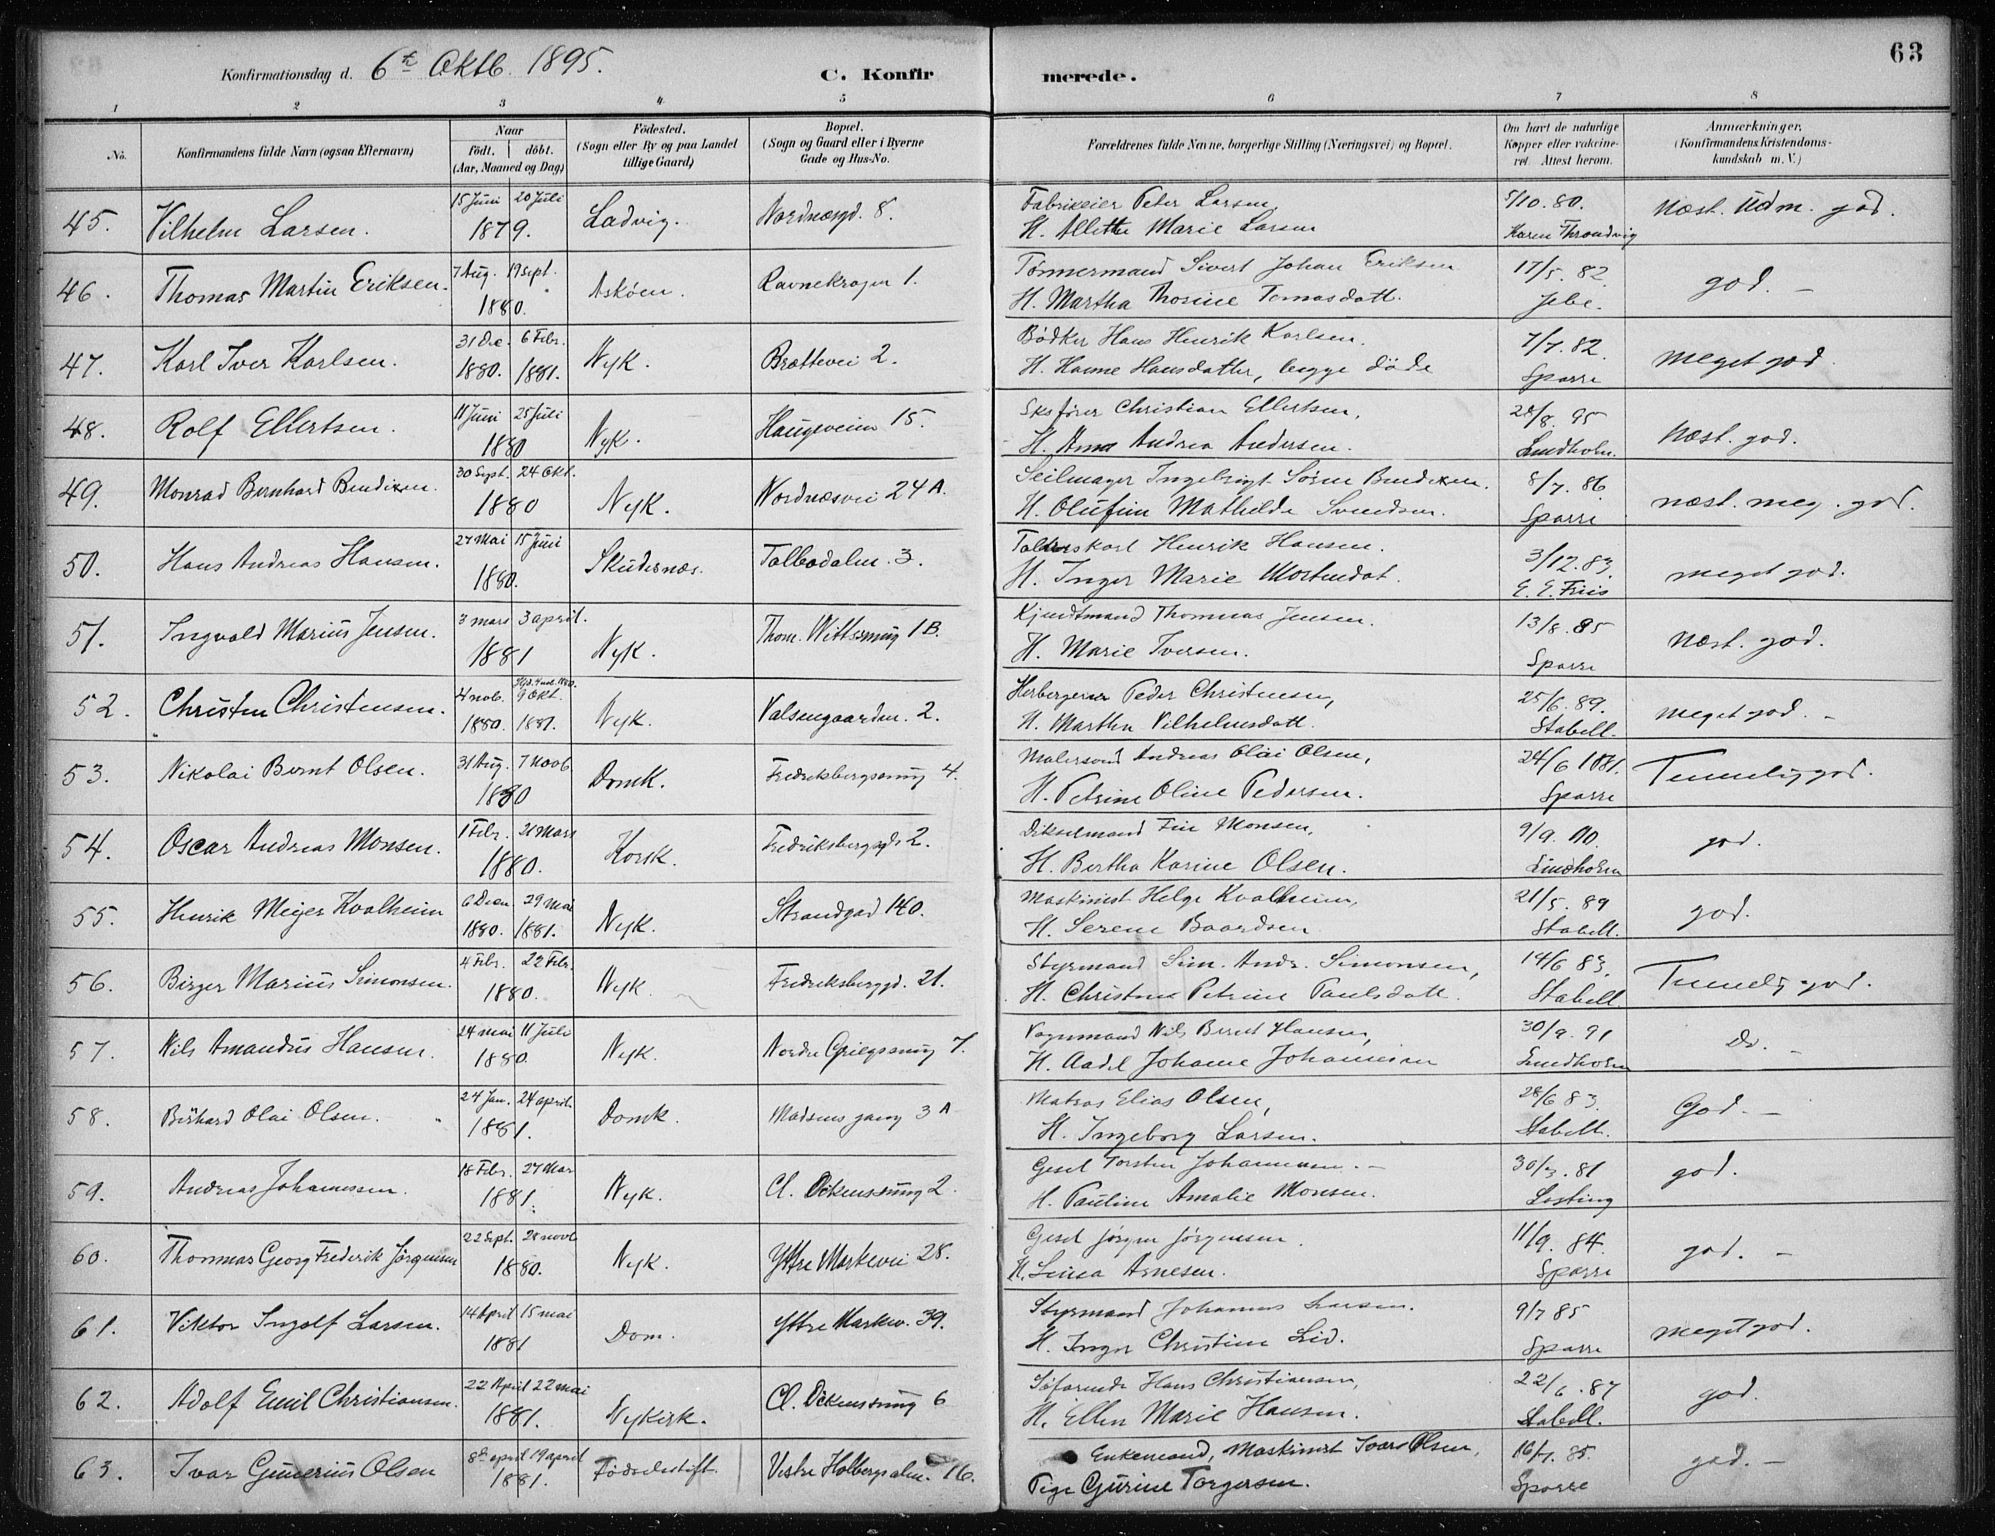 63
Konfirmationsdag d. 6te Oktb. 1895. C. Konfir merede.
1 2 3 4 5 6 7 8
No. Konfirmandens fulde Navn (ogsaa Efternavn) Naar født. døbt. (Aar, Maaned og Dag) Fødested. (Sogn eller By og paa Landet tillige Gaard) Bopæl. (Sogn og Gaard eller i Byerne Gade og Hus-No. Forældrenes fulde Navne, borgerlige Stilling (Næringsvei) og Bopæl. Om havt de naturlige Kopper eller vakcineret. Attest herom. Anmærkninger. (Konfirmandens Kristendomskundskab m. V.)
45. Vilhelm Larsen. 15 Juni 20 Juli 1879. Ladvig. Nordnæsgd. 8. Fabrikeier Peter Larsen, 5/10. 80. Næst. Udm. god.
H. Allette Marie Larsen Karen Throndvig
46. Thomas Martin Eriksen. 7 Aug. 19 Sept. 1880. Askøen. Ravnekrogen 1. Tømmermand Sivert Johan Eriksen 17/5. 82. god. –
H. Martha Thosine Tomasdatt. Jebe.
47. Karl Iver Karlsen. 31 Dec. 1880. 6 Febr. 1881. Nyk. Brattevei 2. Bødker Hans Henrik Karlsen. 7/7. 82. meget god.
H. Hanne Hansdatter, begge døde Sparre
48. Rolf Ellertsen. 11 Juni 25 Juli 1880 Nyk. Haugeveien 15. Sksfører Christian Ellertsen, 28/8. 95 Næst. god.
H. Anna Andrea Andersen. Lindholm.
49. Monrad Bernhard Bendixen. 30 Sept. 24 Okt. 1880 Nyk. Nordnæsvei 24 A. Seilmager Ingebrigt Sørin Bendixen. 8/7. 86 næst. meg. god.
H. Olufine Mathilde Svendsen. Sparre
50. Hans Andreas Hansen. 27 Mai 15 Juni 1880. Skudesnæs. Tolbodalm. 3. Henrik Hansen. 3/12. 83. meget god.
H. Inger Marie Mortendat. E. E. Friis
51. Ingvald Marius Jensen. 3 mars 3 april. 1881 Nyk. Thom. Wittssmug 1 B. Thommas Jensen. 13/8. 85 Næst. god.
H. Marie Iversen. Sparre
52. Christen Christensen. 4 nov. 1880. 9 Okt. 1881. Nyk. Valsengaarden. 2. Peder Christensen, 25/6. 89. meget god. –
H. Marthe Vilhelmsdatt. Stabell.
53. Nikolai Bernt Olsen. 31 Aug. 7 Novb 1880 Domk. Fredriksbergssmug 4. Malersvend Andreas Olai Olsen, 24/6 Temmelig god.
H. Petrine Oline Pedersen. Sparre
54. Oscar Andreas Monsen. 1 Febr. 21 Mars 1880. Korsk. Fredriksbergsgd. 2. Monsen, 9/9. god.
H. Bertha Karine Olsen. Lindholm
55. Henrik Meyer Kvalheim 6 Decm 1880. 29 Mai 1881. Nyk. Strandgad 140. Maskinist Helge Kvalheim, 21/5. 89 god.
H. Serene Baardsen Stabell.
56. Birger Marius Simonsen. 4 Febr. 22 Febr. 1880. Nyk. Fredriksberggd. 21. Styrmand Sim. Andr. Simonsen, 14/6 83. Temmelig god.
H. Christine Petrine Paulsdatt. Stabell
57. Nils Amandus Hansen. 24 mai 11 Juli 1880. Nyk. Nordre Griegssmug 7. Vognmand Nils Bernt Hansen, 30/9. 91 Do. –
H. Aadel Johanne Johannesen Lindholm
58. Olai Olsen. 24 Jan. 24 april. 1881. Domk. Madsens gang 3 A Matros Elias Olsen, 28/6 83. God. –
H. Ingeborg Larsen. Stabell.
59. Andreas Johannesen. 18 Febr. 27 Mar 1881. Nyk. Cl. Ockenssmug 2. Gesel Torsten Johannesen. – 30/3. 81 god.
H. Pauline Amalie Monsen. Losting
60. Thommas Georg Frederik Jørgensen 22 Sept. 28 novb 1880. Nyk. Yttre Markevei 28. Gesel Jørgen Jørgensen. 11/9. 84. god. –
H. Lovisa Arnesen. Sparre
61. Viktor Ingolf Larsen. 14 April 15 mai 1881 Dom. Yttre Markev. 39. Styrmand Johannes Larsen. 9/7 85 meget god.
H. Inger Christine Lid. Sparre
62. Adolf Emil Christiansen. 22 April 22 mai 1881. Nykirk. Cl. Ockenssmug 6 Søfarende Hans Christiansen, 22/6. 87 god.
H. Ellen Marie Hansen. Stabell.
63. Ivar Gunerius Olsen 8de april 19 april 1881. Fødselsstift. Vestre Holbergsalm. 16. Enkemand, Maskinist Ivar Olsen, 16/7. 85. god. –
Pige Gurine Torgersen. Sparre